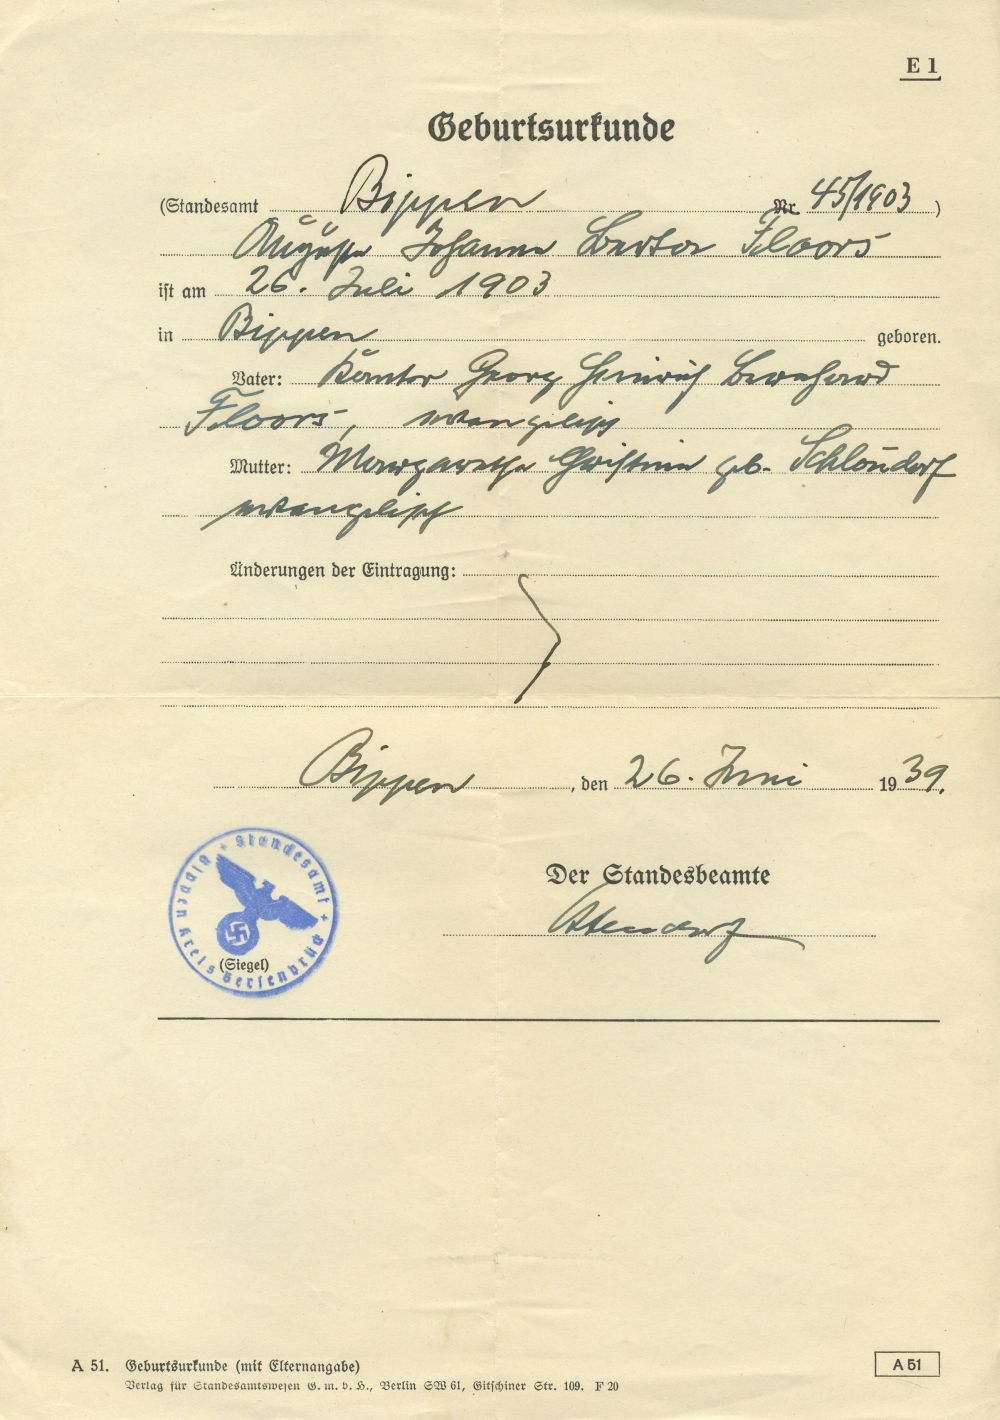 E 1
Geburtsurkunde
(Standesamt Bippen Nr. 45/1903)
Auguste Johanne Berta Floors
ist am 26. Juli 1903
in Bippen geboren.
Vater: Kantor Georg Heinrich Bernhard
Floors, evangelisch
Mutter: Margarethe Christine geb. Schlöndorf
evangelisch
Änderungen der Eintragung:
Bippen, den 26. Juni 1939.
Der Standesbeamte
Standesamt Bippen Kreis Bersenbrück
(Siegel)
A 51. Geburtsurkunde (mit Elternangabe)
A 51
Verlag für Standesamtswesen G. m. b. H., Berlin SW 61, Gitschiner Str. 109. F 20